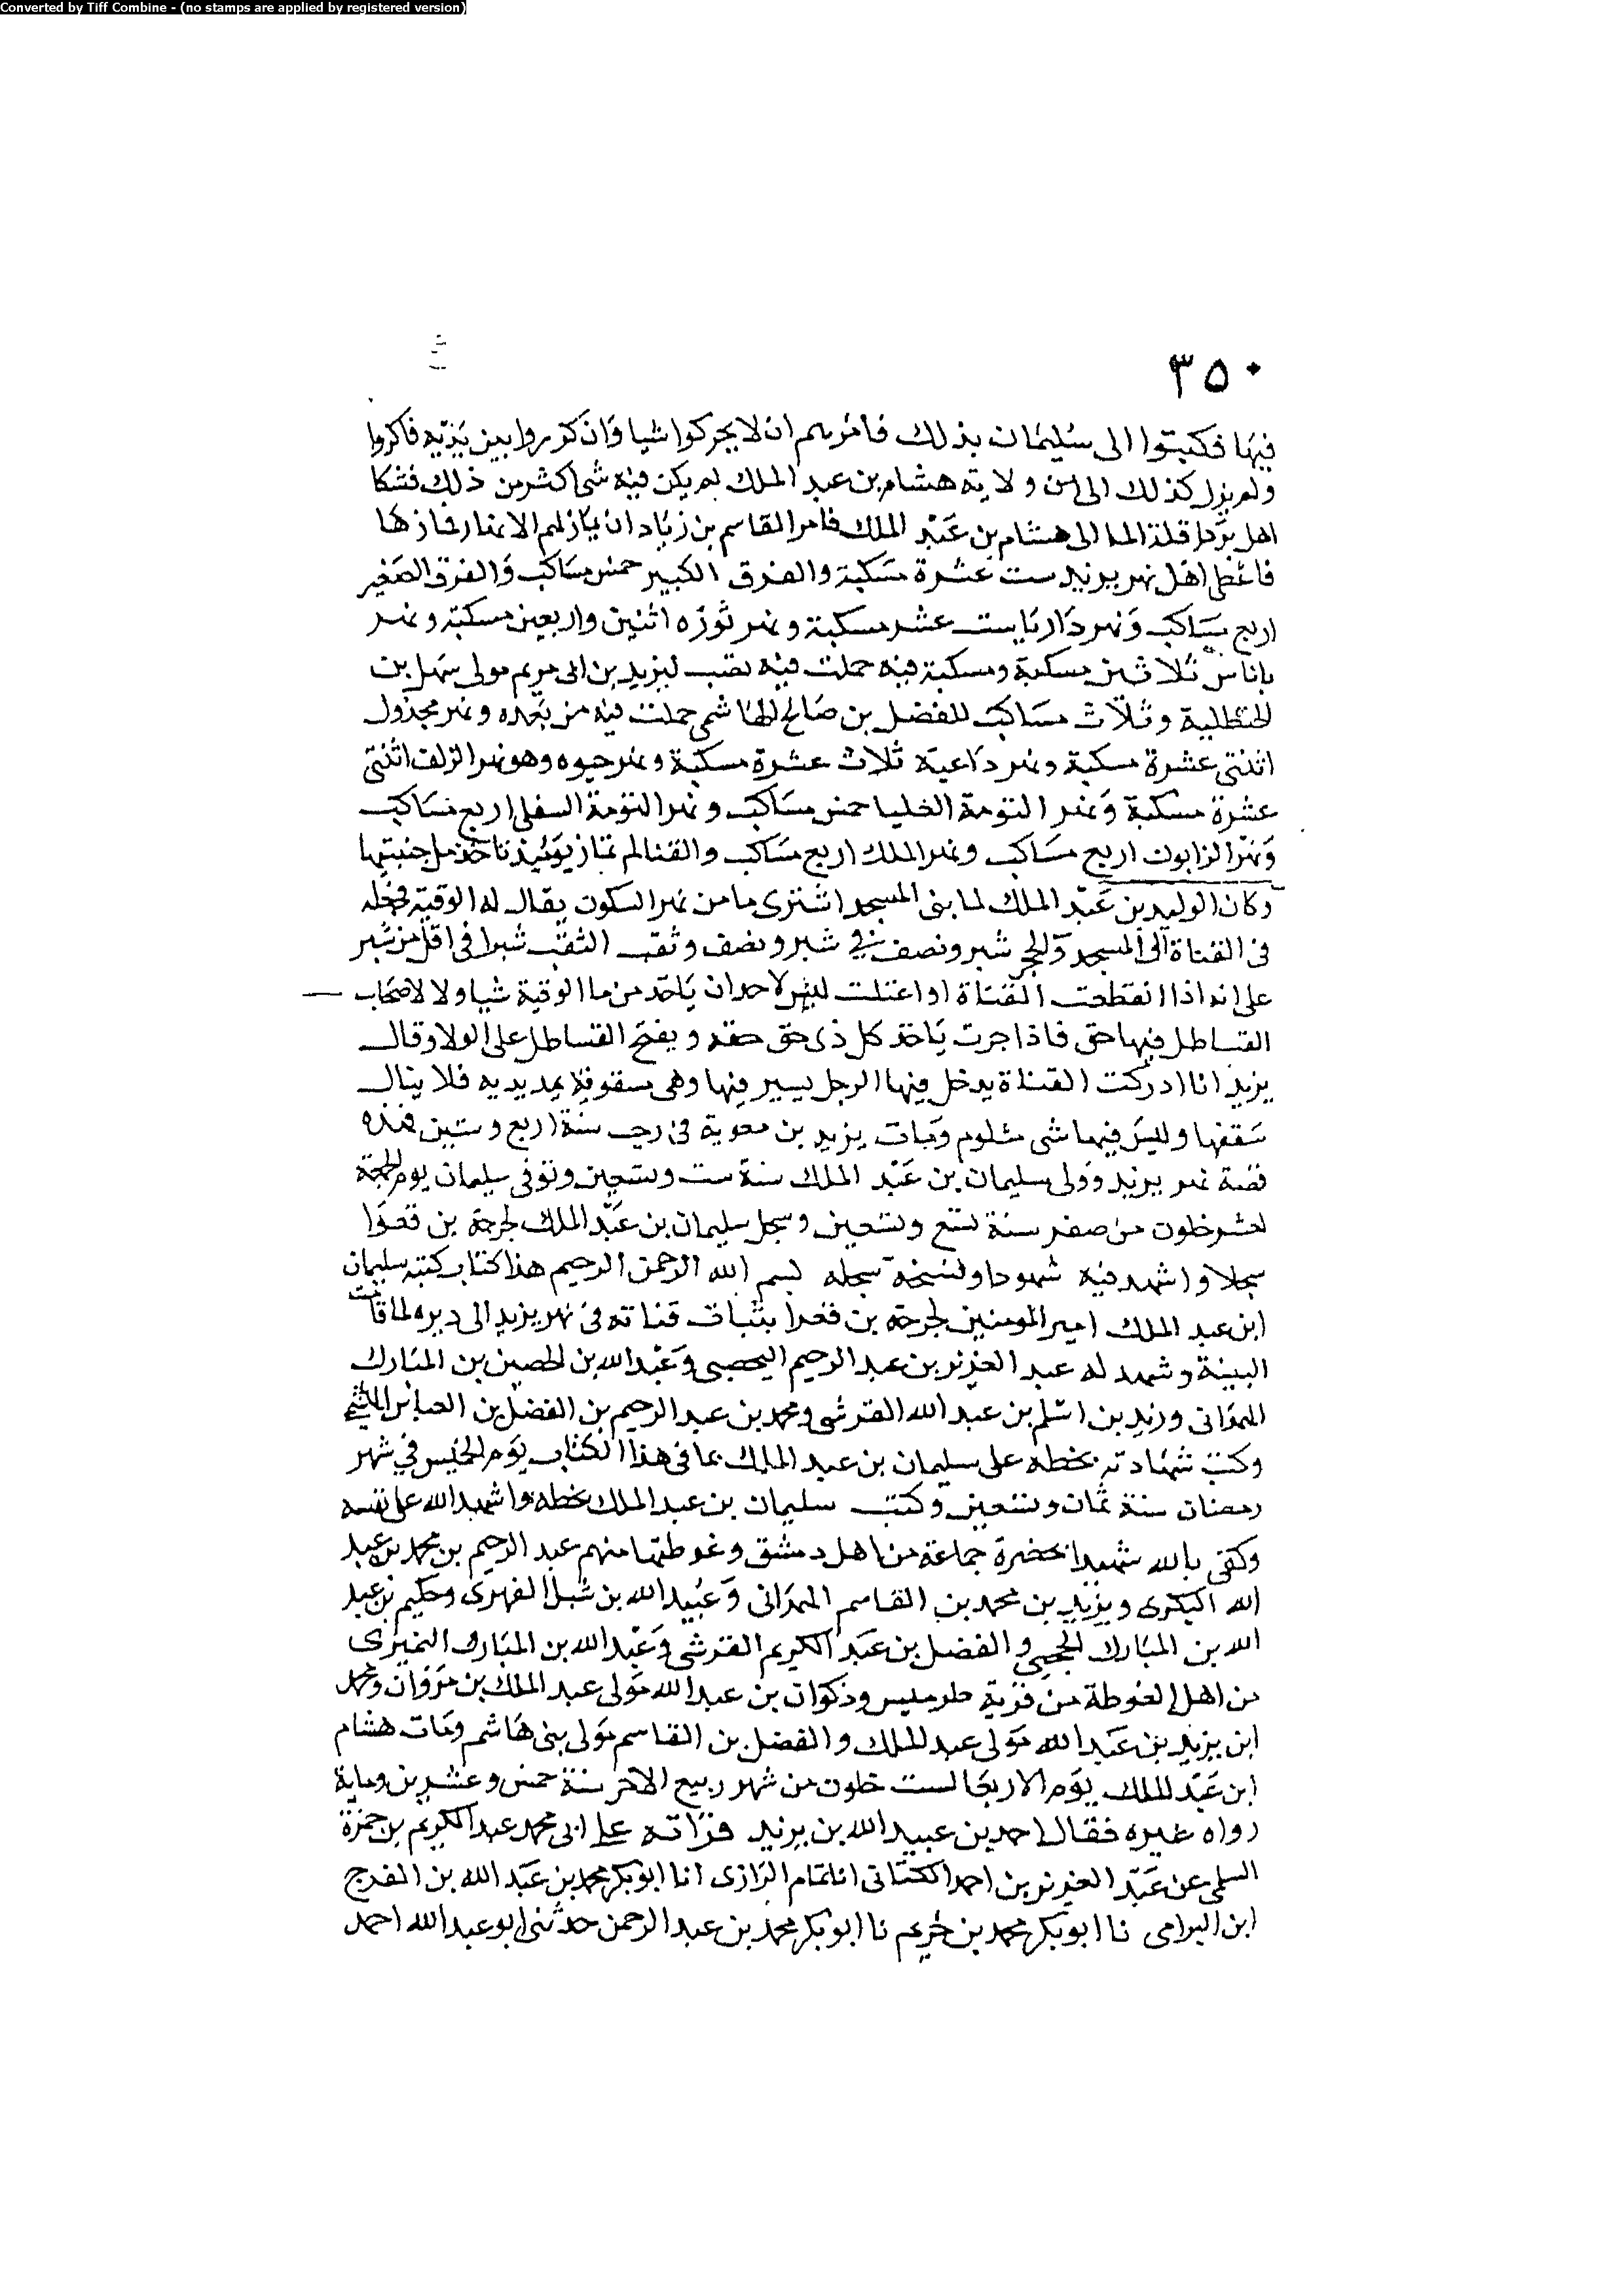 Converted by Tiff Combine - (no stamps are applied by registered version)
٣٥٠
فيها فكتبوا الى سليمان بذلك فامرهم ان لا يحركوا شيا وان كروا بين يديه فاكروا
ولم يزل كذلك الى ان ولاية هشام بن عبد الملك لم يكن فيه شي اكثر من ذلك فشكا
اهل بردا قلة الما الى هشام بن عبد الملك فامر القاسم بن زياد ان يماز لهم الانهار فمازها
فاعطى اهل نهر يزيد ست عشرة مسكبة والفرق الكبير خمس مساكب والفرق الصغير
اربع مساكب ونهر داريا ست عشر مسكبة ونهر ثوره اثنين واربعين مسكبة ونهر
باناس ثلاثين مسكبة ومسكبة فيه حملت فيه نقب ليزيد بن ابى مريم مولى سهل بن
الحنظلية وثلاث مساكب للفضل بن صالح الهاشمى حملت فيه من بعده ونهر مجدول
اثنتى عشرة مسكبة ونهر داعية ثلاث عشرة مسكبة ونهر حيوه وهو نهر الزلف اثنتى
عشرة مسكبة ونهر التومة العليا خمس مساكب ونهر التومة السفلى اربع مساكب
ونهر الزابون اربع مساكب ونهر الملك اربع مساكب والقنا لم تماز يومئذ تاخذ مل جنبتيها
وكان الوليد بن عبد الملك لما بنى المسجد اشترى ما من نهر السكون يقال له الوقية فجعله
فى القناة الى المسجد والحجر شبر ونصف في شبر ونصف وثقب الثقب شبرا فى اقل من شبر
على انه اذا انقطعت القناة او اعتلت ليس لاحد ان ياخذ من ما الوقية شيا ولا لاصحاب
القساطل فيها حق فاذا جرت ياخذ كل ذى حق حقه ويفتح القساطل على الولا وقال
يزيد انا ادركت القناة يدخل فيها الرجل يسير فيها وهى مسقوفة يمد يديه فلا ينال
سقفها وليس فيها شى مثلوم ومات يزيد بن معوية فى رجب سنة اربع وستين فهذه
قصة نهر يزيد وولى سليمان بن عبد الملك سنة ست وتسعين وتوفى سليمان يوم الجمعة
لعشر خلون من صفر سنة تسع وتسعين وسجل سليمان بن عبد الملك لجرجة بن قعرا
سجلا واشهد فيه شهودا ونسخة سجله بسم الله الرحمن الرحيم هذا كتاب كتبه سليمان
ابن عبد الملك امير المومنين لجرجة بن قعرا بثبات قناته فى نهر يزيد الى ديره لما قامت
البينة وشهد له عبد العزيز بن عبد الرحيم اليحصبى وعبد الله بن الحصين بن المبارك
الهمدانى وزيد بن اسلم بن عبد الله القرشى ومحمد بن عبد الرحيم بن الفضل بن العباس الهاشمى
وكتب شهادته بخطه على سليمان بن عبد الملك بما فى هذا الكتاب يوم الخميس في شهر
رمضان سنة ثمان وتسعين وكتب سليمان بن عبد الملك بخطه واشهد الله على نفسه
وكفى بالله شهيدا بحضرة جماعة من اهل دمشق وغوطتها منهم عبد الرحيم بن محمد بن عبد
الله البكرى ويزيد بن محمد بن القاسم الهمدانى وعبيد الله بن شبل الفهرى وحكيم بن عبد
الله بن المبارك الجمحي والفضل بن عبد الكريم القرشى وعبد الله بن المبارك النميرى
من اهل الغوطة من قرية طرميس وذكوان بن عبد الله مولى عبد الملك بن مروان ومحمد
ابن يزيد بن عبد الله مولى عبد الملك والفضل بن القاسم مولى بنى هاشم ومات هشام
ابن عبد الملك يوم الاربعا لست خلون من شهر ربيع الاخر سنة خمس وعشرين وماية
رواه غيره فقال احمد بن عبيد الله بن يزيد قراته على ابى محمد عبد الكريم بن حمزة
السلمى عن عبد العزيز بن احمد الكتانى انا تمام الرازى انا ابو بكر محمد بن عبد الله بن الفرج
ابن البرامى نا ابو بكر محمد بن خريم نا ابو بكر محمد بن عبد الرحمن حدثنى ابو عبد الله احمد